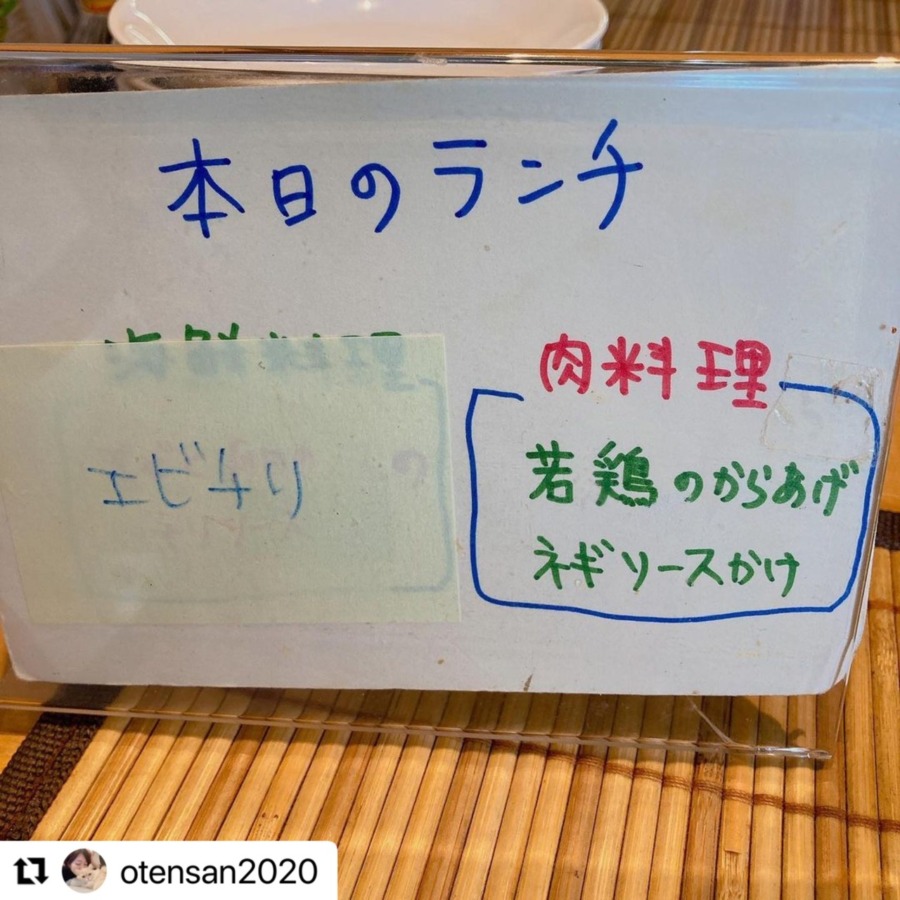 本日のランチ
海鮮料理
エビチリ
肉料理
若鶏のからあげ
ネギソースかけ
otensan2020